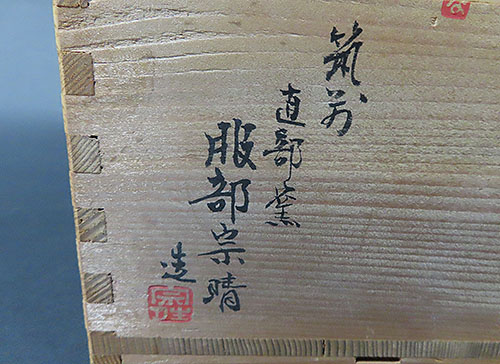 筑前
直部窯
服部宗晴
造